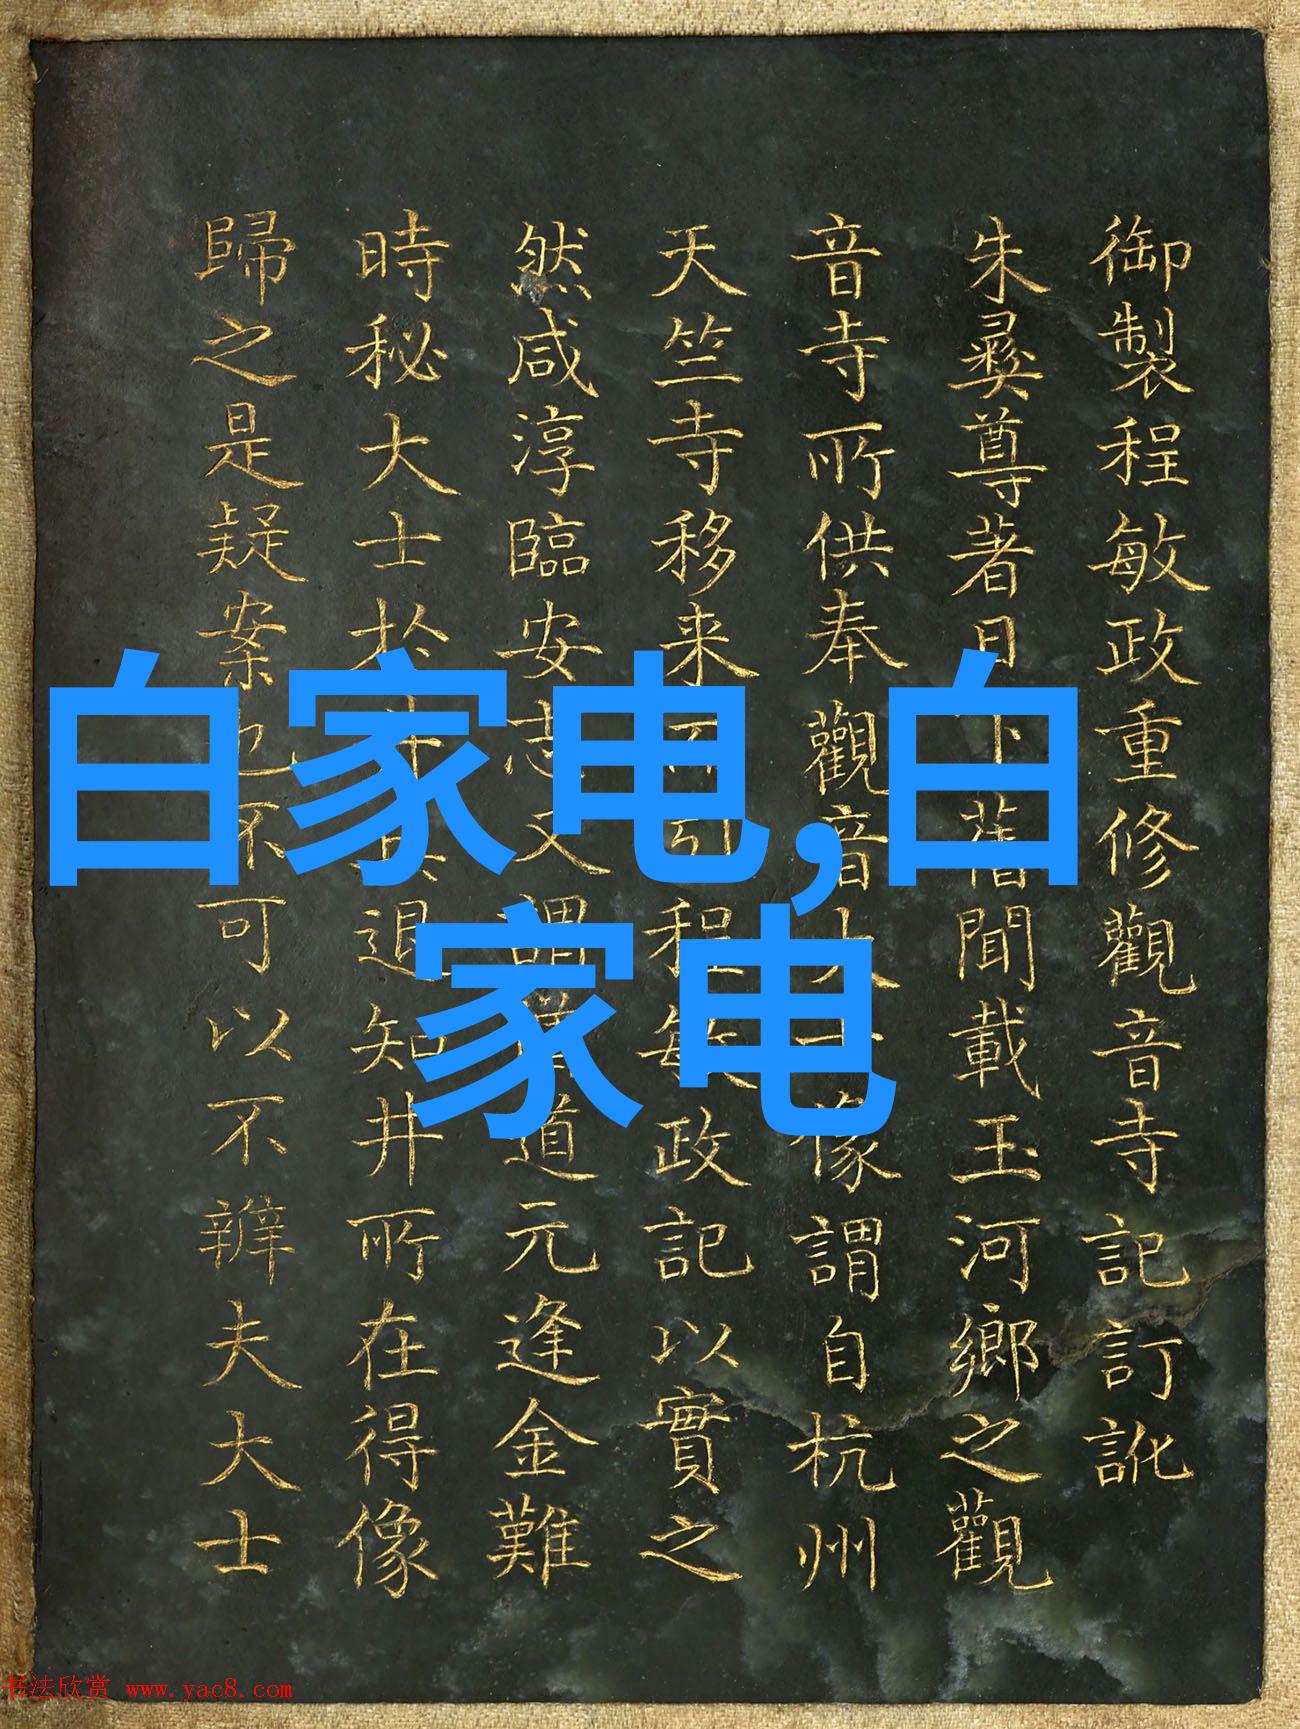 御製程敏政重修觀音寺記訂訛
朱彝尊著日下舊聞載玉河鄉之觀
音寺所供奉觀音大士像謂自杭州
天竺寺移来而引程敏政記以實之
然咸淳臨安志又謂道元逢金難
時秘大士於井退知井所在得像
歸之是疑案也不可以不辨夫大士
白家电,白
家电
书法欣赏 www.yac8.com